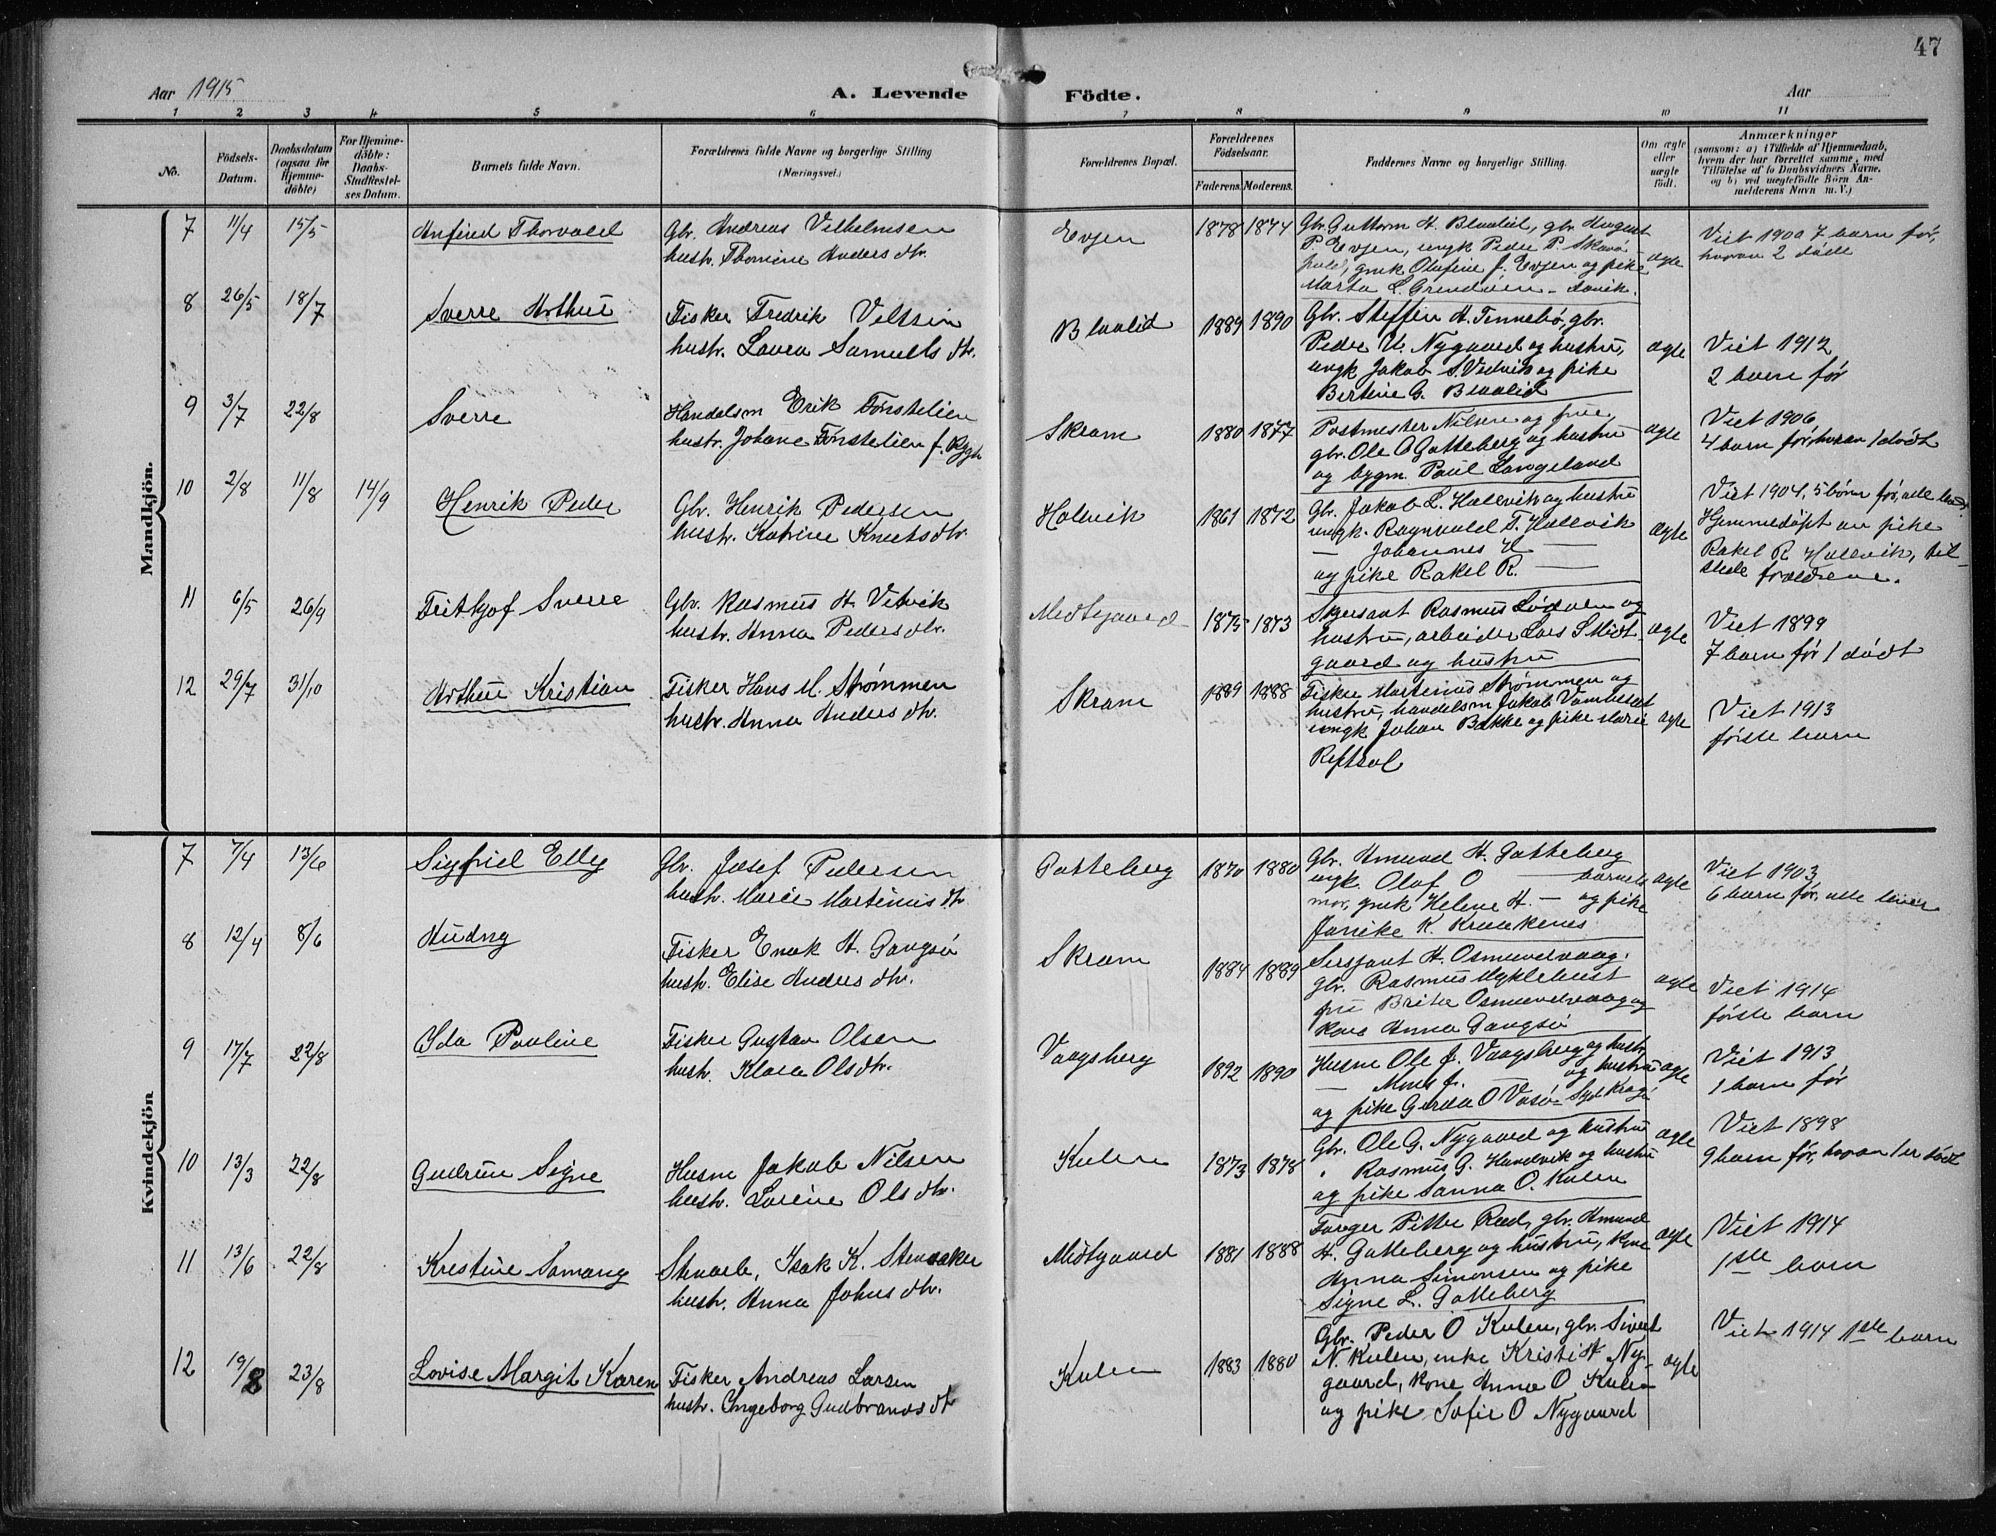 47
Aar 1915
A. Levende Födte.
Aar
1 2 3 4 5 6 7 8 9 10 11
No.
Födsels-Datum.
Daabsdatum (ogsaa for Hjemmedöbte)
For Hjemmedöbte: Daabs-Stadfestelses Datum.
Barnets fulde Navn.
Forældrenes fulde Navne og borgerlige Stilling (Næringsvei.)
Forældrenes Bopæl.
Forældrenes Födselsaar.
Faderens. Moderens.
Faddernes Navne og borgerlige Stilling.
Om ægte eller uægte födt.
Anmærkninger
(saasom: a) i Tilfælde af Hjemmedaab, hvem der har forrettet samme, med Tilföielse af to Daabsvidners Navne, og b) ved uægtefödte Börn Anmelderens Navn m. V.)
Mandkjön.
7 11/4 15/5 Anfind Thorvald
Gbr. Andreas Vilhelmsen
hustr. Thomine Andersdtr.
Evjen 1878 1874
Gbr. Guttorm A. Blaalid, gbr. August
P. Evjen, ungk Peder P.
gmk Olafine J. Evjen og pike
Marta L.
ægte
Viet 1900 7 barn før,
hvorav 2 døde
8 26/5 18/7 Sverre Arthur
Fisker Fredrik Veltsin
hustr. Lovea Samuelsdtr.
Blaalid 1889 1890
Gbr. Steffen A. Tennebø, gbr.
Peder A. Nygaard og hustru,
ungk Jakob S. Vedvik og pike
Bertine G. Blaalid
ægte
Viet 1912
2 barn før
9 3/7 22/8 Sverre
Handelsm Erik Tønstelien
hustr. Johane Tønstelien f. Rygh
Skram 1880 1877
Postmester Nilsen og frue,
gbr. Ole O Gotteberg og hustru
og bygm. Paul Langeland
ægte
Viet 1906
4 barn før, hvorav 1 dødt
10 2/8 11/8 14/9 Henrik Peder
Gbr. Henrik Pedersen
hustr. Katrine Knutsdtr.
Halvik 1861 1872
Gbr. Jakob L. Hallevik og hustru
ungk. Ragnvald T. Hallevik
— Johannes H —
og pike Rakel R. —
ægte
Viet 1904, 5 børn før, alle lever.
Hjemmedøpt av pike
Rakel R Hallevik, til
stede forældrene.
11 6/5 26/9 Fritjof Sverre
Gbr. Rasmus A. Vedvik
hustr. Anna Pedersdtr.
Midtgaard 1875 1873
Skersant Rasmus Lødøen og
hustru, arbeider Lars S Midt-
gaard og hustru
ægte
Viet 1899
7 barn før 1 dødt
12 29/7 31/10 Arthur Kristian
Fisker Hans M. Strømmen
hustr. Anna Andersdtr.
Skram 1889 1888
Fisker Martinius Strømmen og
hustru, handelsm Jakob Vemmelsvik
ungk Johan Bakke og pike Marie
Reftsol
ægte
Viet 1913
første barn
Kvindekjön
7 7/4 13/6 Sigfrid Elly
Gbr. Josef Pedersen
hustr. Marie Martiniusdtr
Gotteberg 1870 1880
Gbr. Amund A. Gotteberg
ungk. Olaf O — barnets
mor, gmk Helene A. — og pike
Janike K Kraakenes
ægte
Viet 1903
6 barn før, alle lever
8 12/4 8/6 Audny
Fisker Enok A. Gangsø
hustr. Elise Andersdtr.
Skram 1884 1889
Sersjant A. Osmundsvaag.
gbr. Rasmus Myklebust
fru Brita Osmundsvaag og
kone Anna Gangsø
ægte
Viet 1914
første barn
9 17/7 22/8 Ida Pauline
Fisker Gustav Olsen
hustr. Klara Olsdtr.
Vaagsberg 1892 1890
Husm Ole J. Vaagsberg og hustr,
— Mons J. — og hustru
og pike Gerda O Vasø
ægte
Viet 1913
1 barn før
10 13/3 22/8 Gudrun Signe
Husm Jakob Nilsen
hustr. Lorine Olsdtr.
Kulen 1873 1878
Gbr. Ole G. Nygaard og hustru
" Rasmus G. Hundvik og hustru
og pike Sanna O. Kulen
ægte
Viet 1898
9 barn før, hvorav 1 er dødt
11 13/6 22/8 Kristine Samang
Stenarb. Isak K. Stensaker
hustr. Anna Johnsdtr.
Midtgaard 1881 1888
Farger Pitter Red, gbr. Amund
A. Gotteberg og hustru, kone
Anna Simonsen og pike
Signe L. Gotteberg
ægte
Viet 1914
1ste barn
12 19/8 23/8 Lovise Margit Karen
Fisker Andreas Larsen
hustr. Ingeborg Gudbrandsdtr
Kulen 1883 1880
Gbr. Peder O Kulen, gbr. Sivert
N. Kulen, enke Kristi A Ny-
gaard, kone Anna O Kulen
og pike Sofie O Nygaard
ægte
Viet 1914 1ste barn